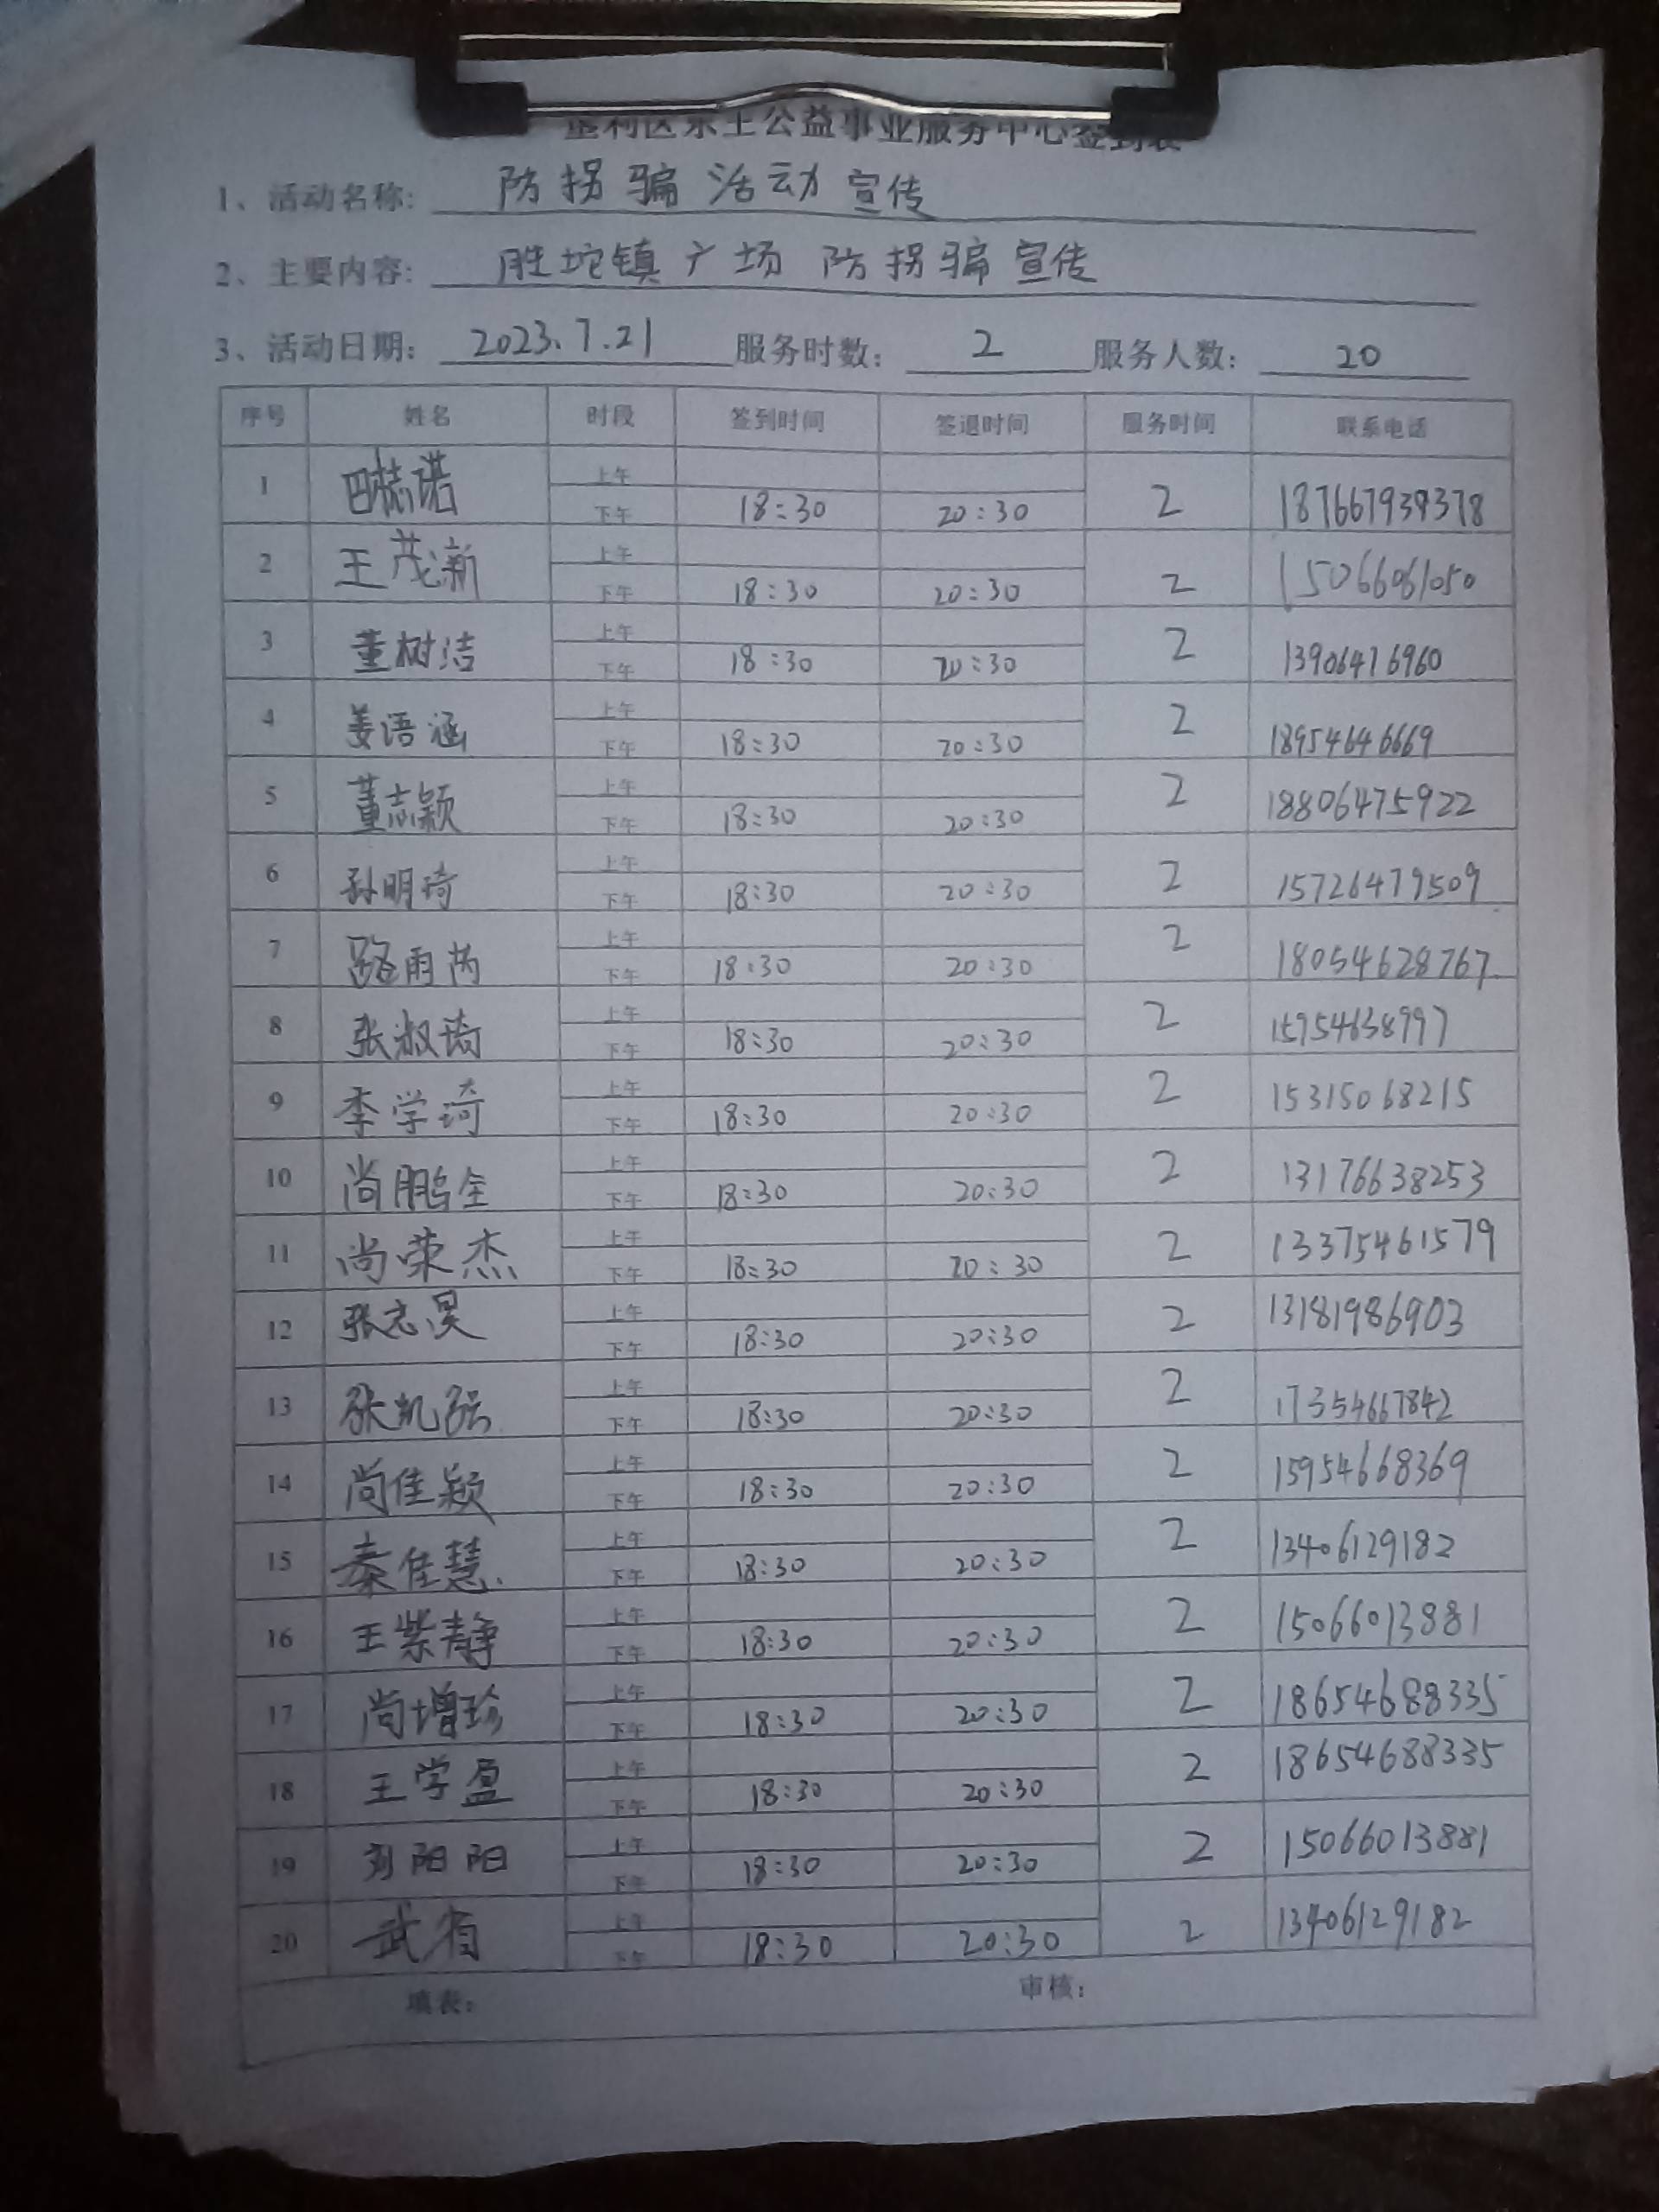 垦利区乐土公益事业服务中心签到表
1、活动名称: 防拐骗活动宣传
2、主要内容: 胜坨镇广场防拐骗宣传
3、活动日期: 2023.7.21 服务时数: 2 服务人数: 20
序号 姓名 时段 签到时间 签退时间 服务时间 联系电话
1 上午
下午 18:30 20:30 2 187667939378
2 王茂新 上午
下午 18:30 20:30 2 15066061050
3 董树洁 上午
下午 18:30 20:30 2 13906476960
4 姜语涵 上午
下午 18:30 20:30 2 18954646669
5 董志颖 上午
下午 18:30 20:30 2 18806475922
6 孙明琦 上午
下午 18:30 20:30 2 15726479509
7 路雨芮 上午
下午 18:30 20:30 2 18054628767
8 张淑琦 上午
下午 18:30 20:30 2 15954638997
9 李学琦 上午
下午 18:30 20:30 2 15315068215
10 尚鹏全 上午
下午 18:30 20:30 2 13176638253
11 尚荣杰 上午
下午 18:30 20:30 2 13375461579
12 张志昊 上午
下午 18:30 20:30 2 13181986903
13 张凯强 上午
下午 18:30 20:30 2 17354667842
14 尚佳颖 上午
下午 18:30 20:30 2 15954668369
15 秦佳慧 上午
下午 18:30 20:30 2 13406129182
16 王紫静 上午
下午 18:30 20:30 2 15066013881
17 尚增珍 上午
下午 18:30 20:30 2 18654688335
18 王学盈 上午
下午 18:30 20:30 2 18654688335
19 刘阳阳 上午
下午 18:30 20:30 2 15066013881
20 上午
下午 18:30 20:30 2 13406129182
填表: 审核: